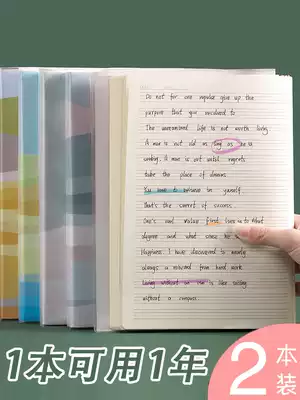 Do not for one repulse give up the
purpose that you resolved to
The unexamined life is not worth living
A man is not old as long as he is
seeking. A man is not old until regrets
take the place of dreams.
You have to believe in yourself.
That's the secret of success.
One's real value first lies in to what
degree and what sense he
Happiness: I have discovered is nearly
always a rebound from hard work
Living without an aim is like sailing
without a compass
1本可用1年
2
本装